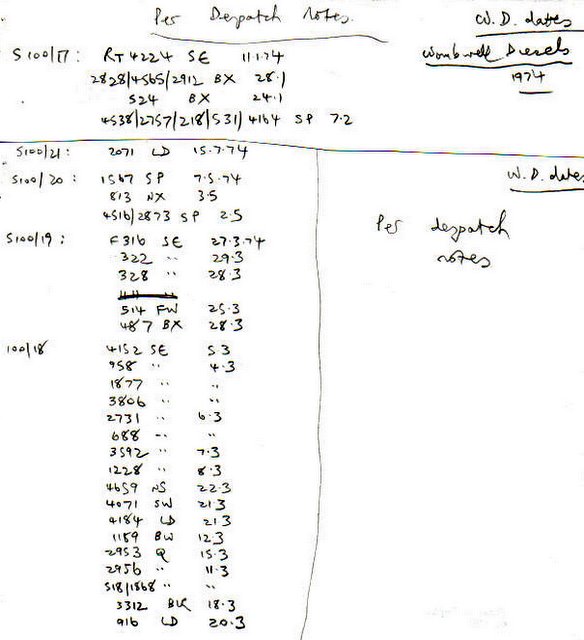 Per Despatch notes.
W.D. dates
S100/17: RT4224 SE 11.1.74
Wombwell Diesels
2828/4565/2912 BX 28.1
1974
524 BX 24.1
4538/2757/218/531/4164 SP 7.2
S100/21: 2071 LD 15.7.74
S100/20: 1567 SP 7.5.74
W.D. dates
813 NX 3.5
4516/2873 SP 2.5
Per despatch
notes
S100/19: F316 SE 27.3.74
322 " 29.3
328 " 28.3
514 FW 25.3
487 BX 28.3
100/18 4152 SE 5.3
958 " 4.3
1877 " "
3806 " "
2731 " 6.3
688 " "
3592 " 7.3
1228 " 8.3
4659 NS 22.3
4071 SW 21.3
4184 LD 21.3
1159 BW 12.3
2953 Q 15.3
2956 " 11.3
518/1868 " "
3312 BK 18.3
916 LD 20.3